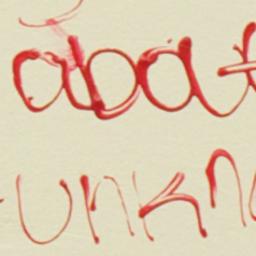 abat
unkn